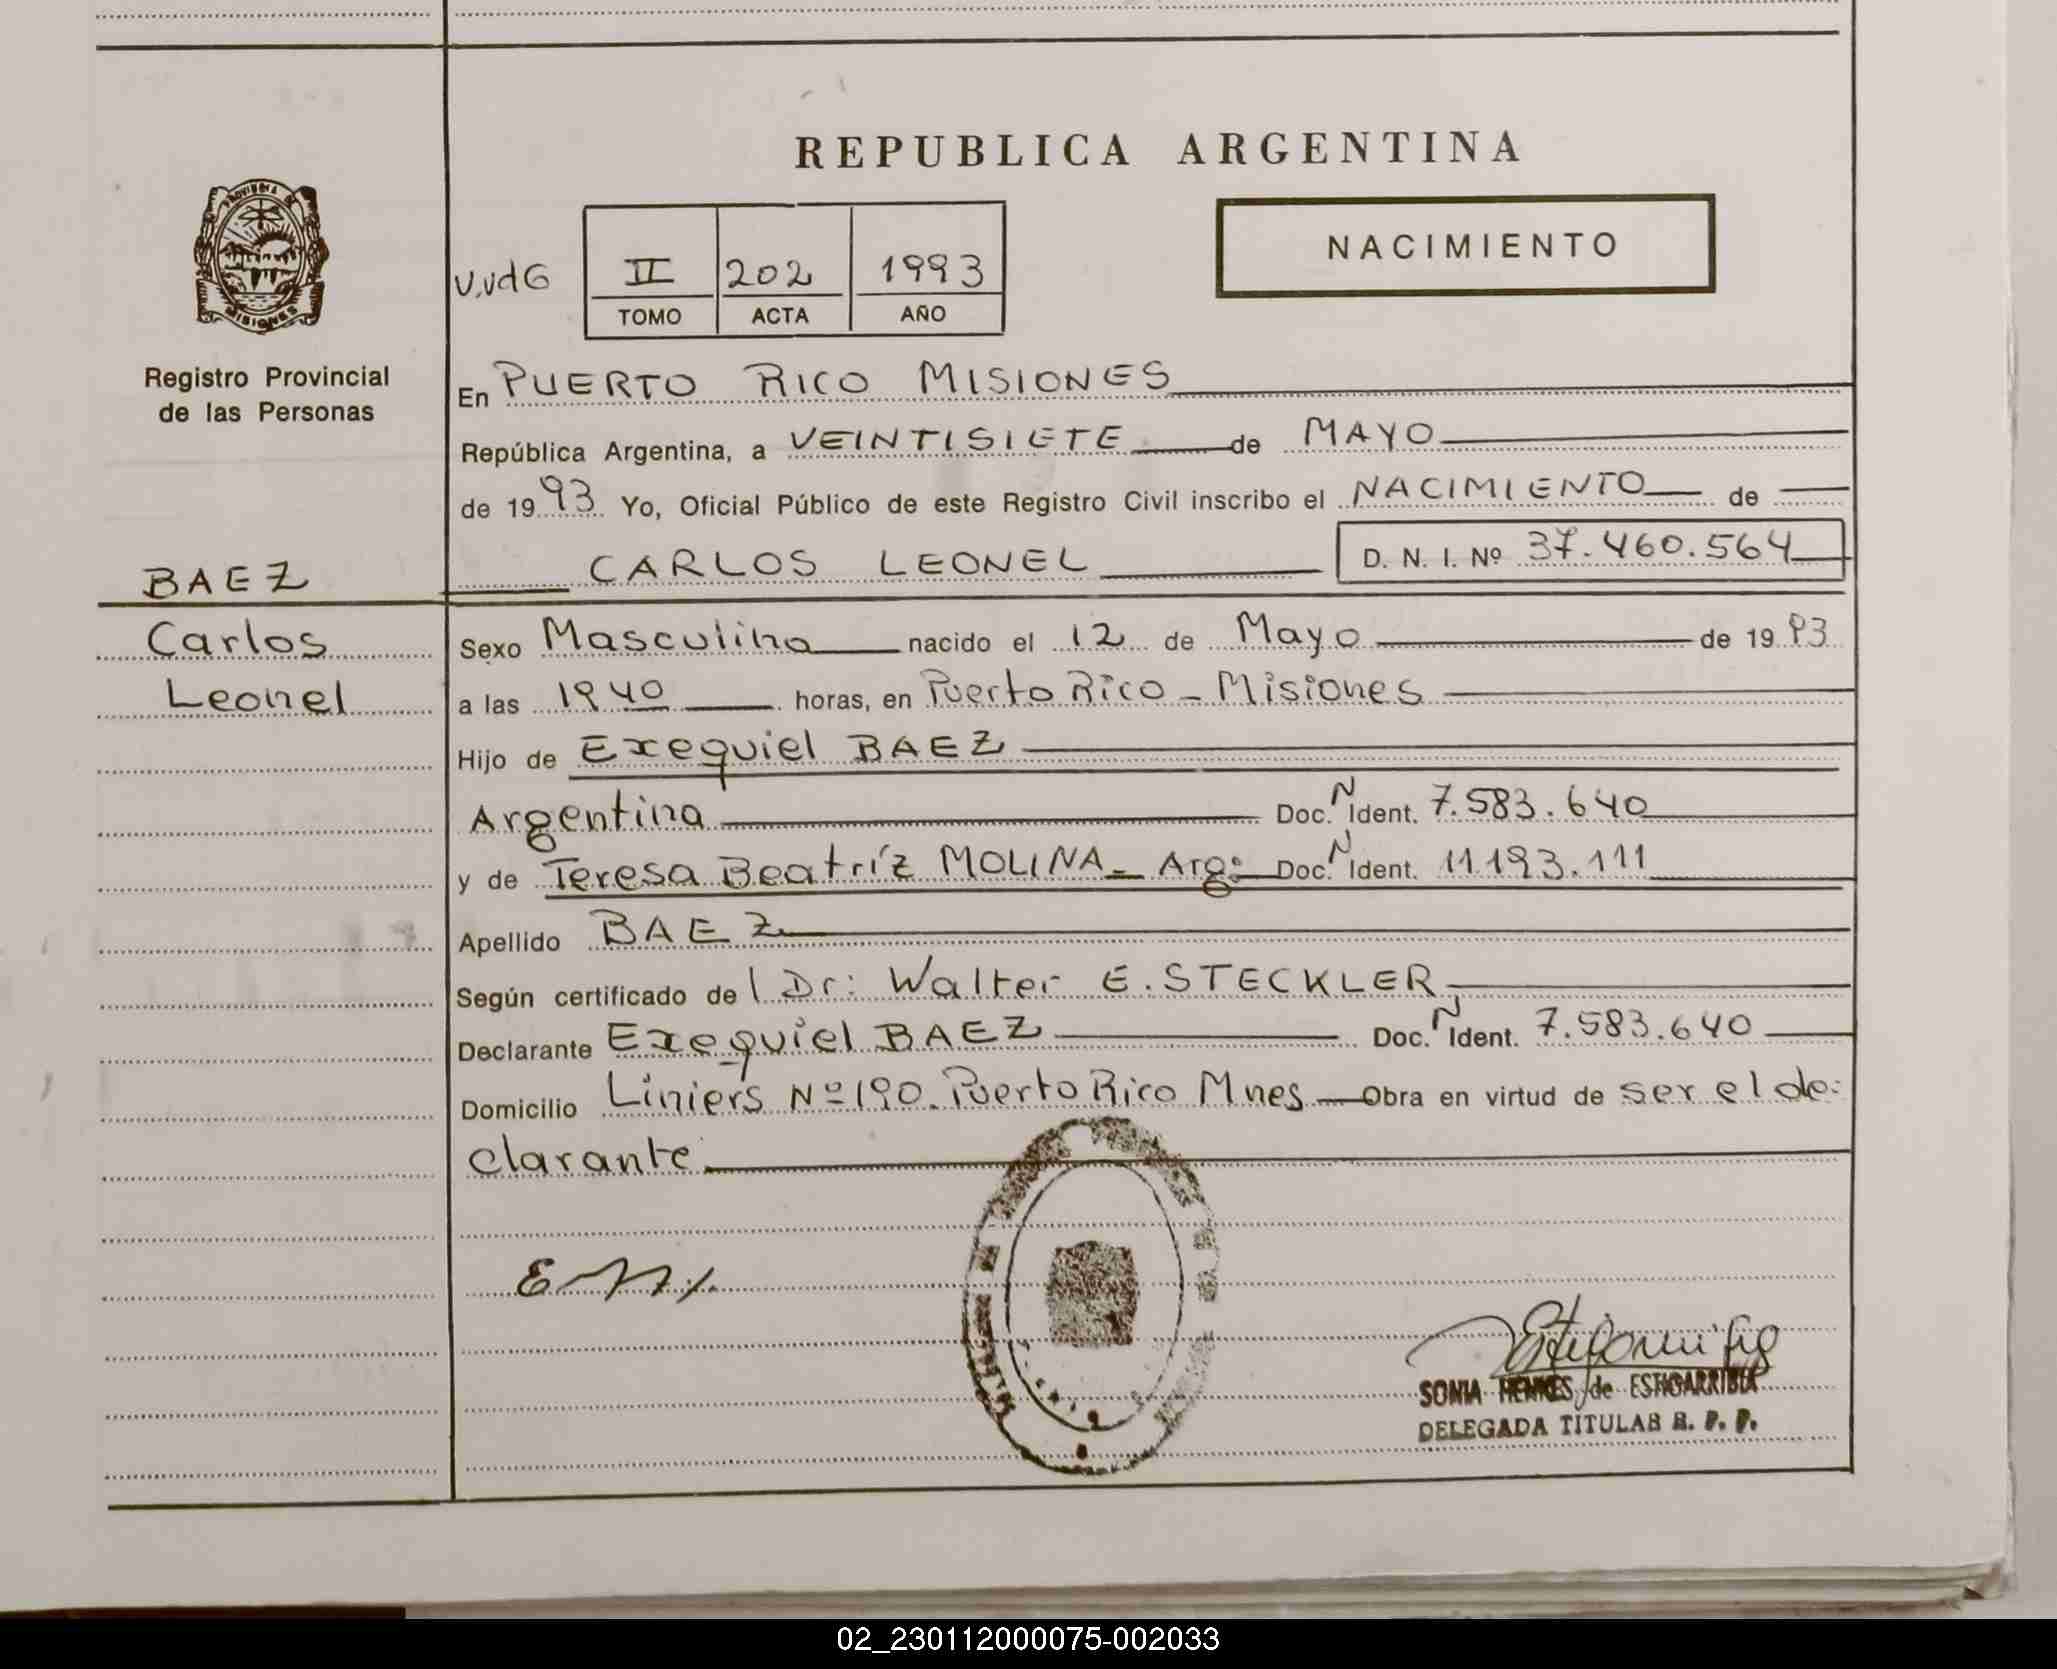 REPUBLICA ARGENTINA
PROVINCIA DE
MISIONES
Registro Provincial
de las Personas
V.Vd6
II 202 1993
TOMO ACTA AÑO
NACIMIENTO
En PUERTO RICO MISIONES
República Argentina, a VEINTISIETE de MAYO
de 1993 Yo, Oficial Público de este Registro Civil inscribo el NACIMIENTO de
CARLOS LEONEL D. N. I. Nº 37.460.564
BAEZ
Carlos
Leonel
Sexo Masculino nacido el 12 de Mayo de 1993
a las 19 40 horas, en Puerto Rico - Misiones
Hijo de Exequiel BAEZ
Argentina Doc. N Ident. 7.583.640
y de Teresa Beatríz MOLINA - Arg: Doc. N Ident. 11193.111
Apellido BAEZ
Según certificado de l Dr: Walter E. STECKLER
Declarante Exequiel BAEZ Doc. N Ident. 7.583.640
Domicilio Liniers Nº 190. Puerto Rico Mnes Obra en virtud de ser el de:
clarante
SONIA HENKES de ESTIGARRIBIA
DELEGADA TITULAR R. P. P.
02_230112000075-002033